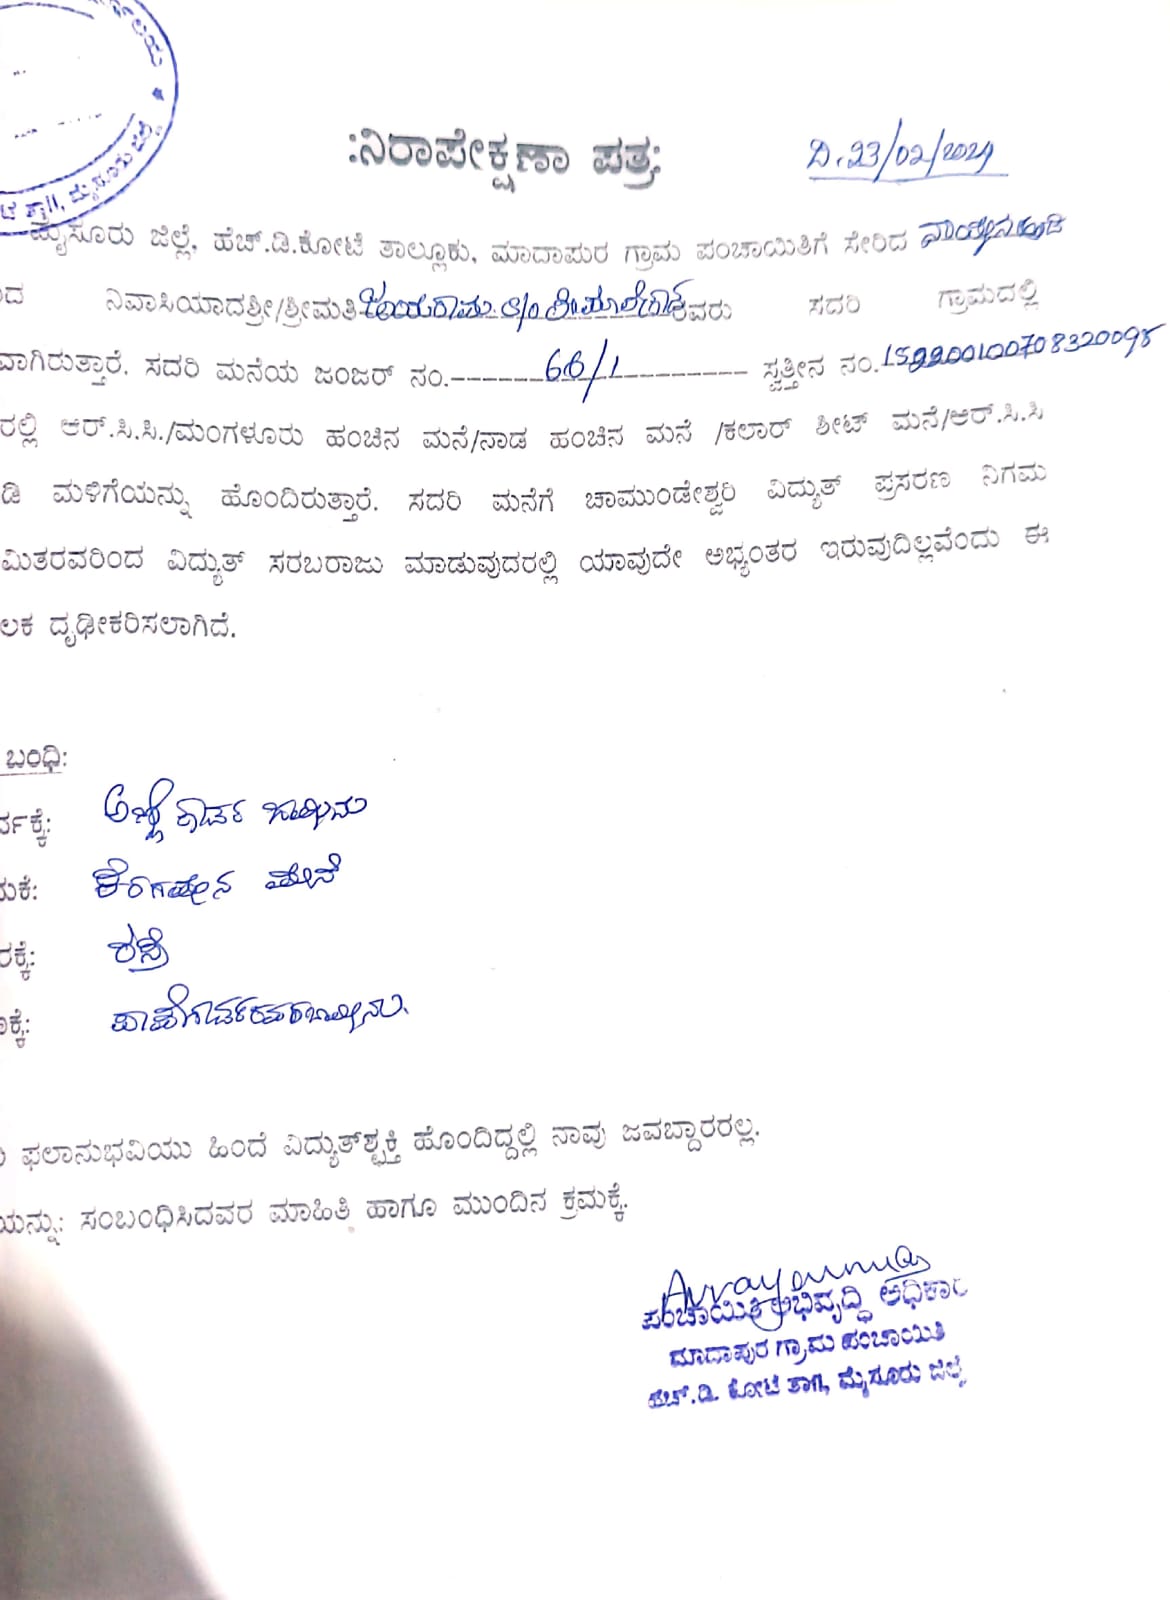 ಟೆ ತಾ||, ಮೈಸೂರು ಜಿಲ್ಲೆ
:ನಿರಾಪೇಕ್ಷಣಾ ಪತ್ರ:
ದಿ. 23/02/2021
ಮೈಸೂರು ಜಿಲ್ಲೆ, ಹೆಚ್.ಡಿ.ಕೋಟೆ ತಾಲ್ಲೂಕು, ಮಾದಾಪುರ ಗ್ರಾಮ ಪಂಚಾಯಿತಿಗೆ ಸೇರಿದ
ದ ನಿವಾಸಿಯಾದಶ್ರೀ/ಶ್ರೀಮತಿ ಜಯರಾಮ S/o ರವರು ಸದರಿ ಗ್ರಾಮದಲ್ಲಿ
ವಾಗಿರುತ್ತಾರೆ. ಸದರಿ ಮನೆಯ ಜಂಜರ್ ನಂ.------66/1------- ಸ್ವತ್ತೀನ ನಂ.152200100708320098
ರಲ್ಲಿ ಆರ್.ಸಿ.ಸಿ./ಮಂಗಳೂರು ಹಂಚಿನ ಮನೆ/ನಾಡ ಹಂಚಿನ ಮನೆ /ಕಲಾರ್ ಶೀಟ್ ಮನೆ/ಆರ್.ಸಿ.ಸಿ
ಡಿ ಮಳಿಗೆಯನ್ನು ಹೊಂದಿರುತ್ತಾರೆ. ಸದರಿ ಮನೆಗೆ ಚಾಮುಂಡೇಶ್ವರಿ ವಿದ್ಯುತ್ ಪ್ರಸರಣ ನಿಗಮ
ಮಿತರವರಿಂದ ವಿದ್ಯುತ್ ಸರಬರಾಜು ಮಾಡುವುದರಲ್ಲಿ ಯಾವುದೇ ಅಭ್ಯಂತರ ಇರುವುದಿಲ್ಲವೆಂದು ಈ
ಲಕ ದೃಢೀಕರಿಸಲಾಗಿದೆ.
ಬಂಧಿ:
ರ್ವಕ್ಕೆ:
ಮಕೆ: ಮನೆ
ರಕ್ಕೆ: ರಸ್ತೆ
ಕ್ಕೆ:
ಫಲಾನುಭವಿಯು ಹಿಂದೆ ವಿದ್ಯುತ್‌ಶ್ಚಕ್ತಿ ಹೊಂದಿದ್ದಲ್ಲಿ ನಾವು ಜವಬ್ದಾರರಲ್ಲ.
ಯನ್ನು: ಸಂಬಂಧಿಸಿದವರ ಮಾಹಿತಿ ಹಾಗೂ ಮುಂದಿನ ಕ್ರಮಕ್ಕೆ.
ಪಂಚಾಯಿತಿ ಅಭಿವೃದ್ಧಿ ಅಧಿಕಾರಿ
ಮಾದಾಪುರ ಗ್ರಾಮ ಪಂಚಾಯಿತಿ
ಹೆಚ್.ಡಿ. ಕೋಟೆ ತಾ||, ಮೈಸೂರು ಜಿಲ್ಲೆ